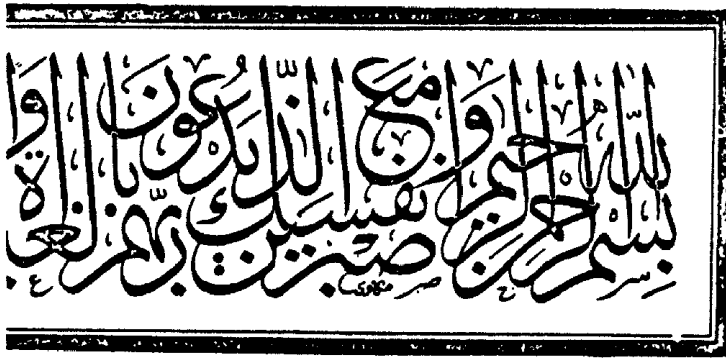 بسم الله الرحمن الرحيم واصبر نفسك مع الذين يدعون ربهم بالغدوة